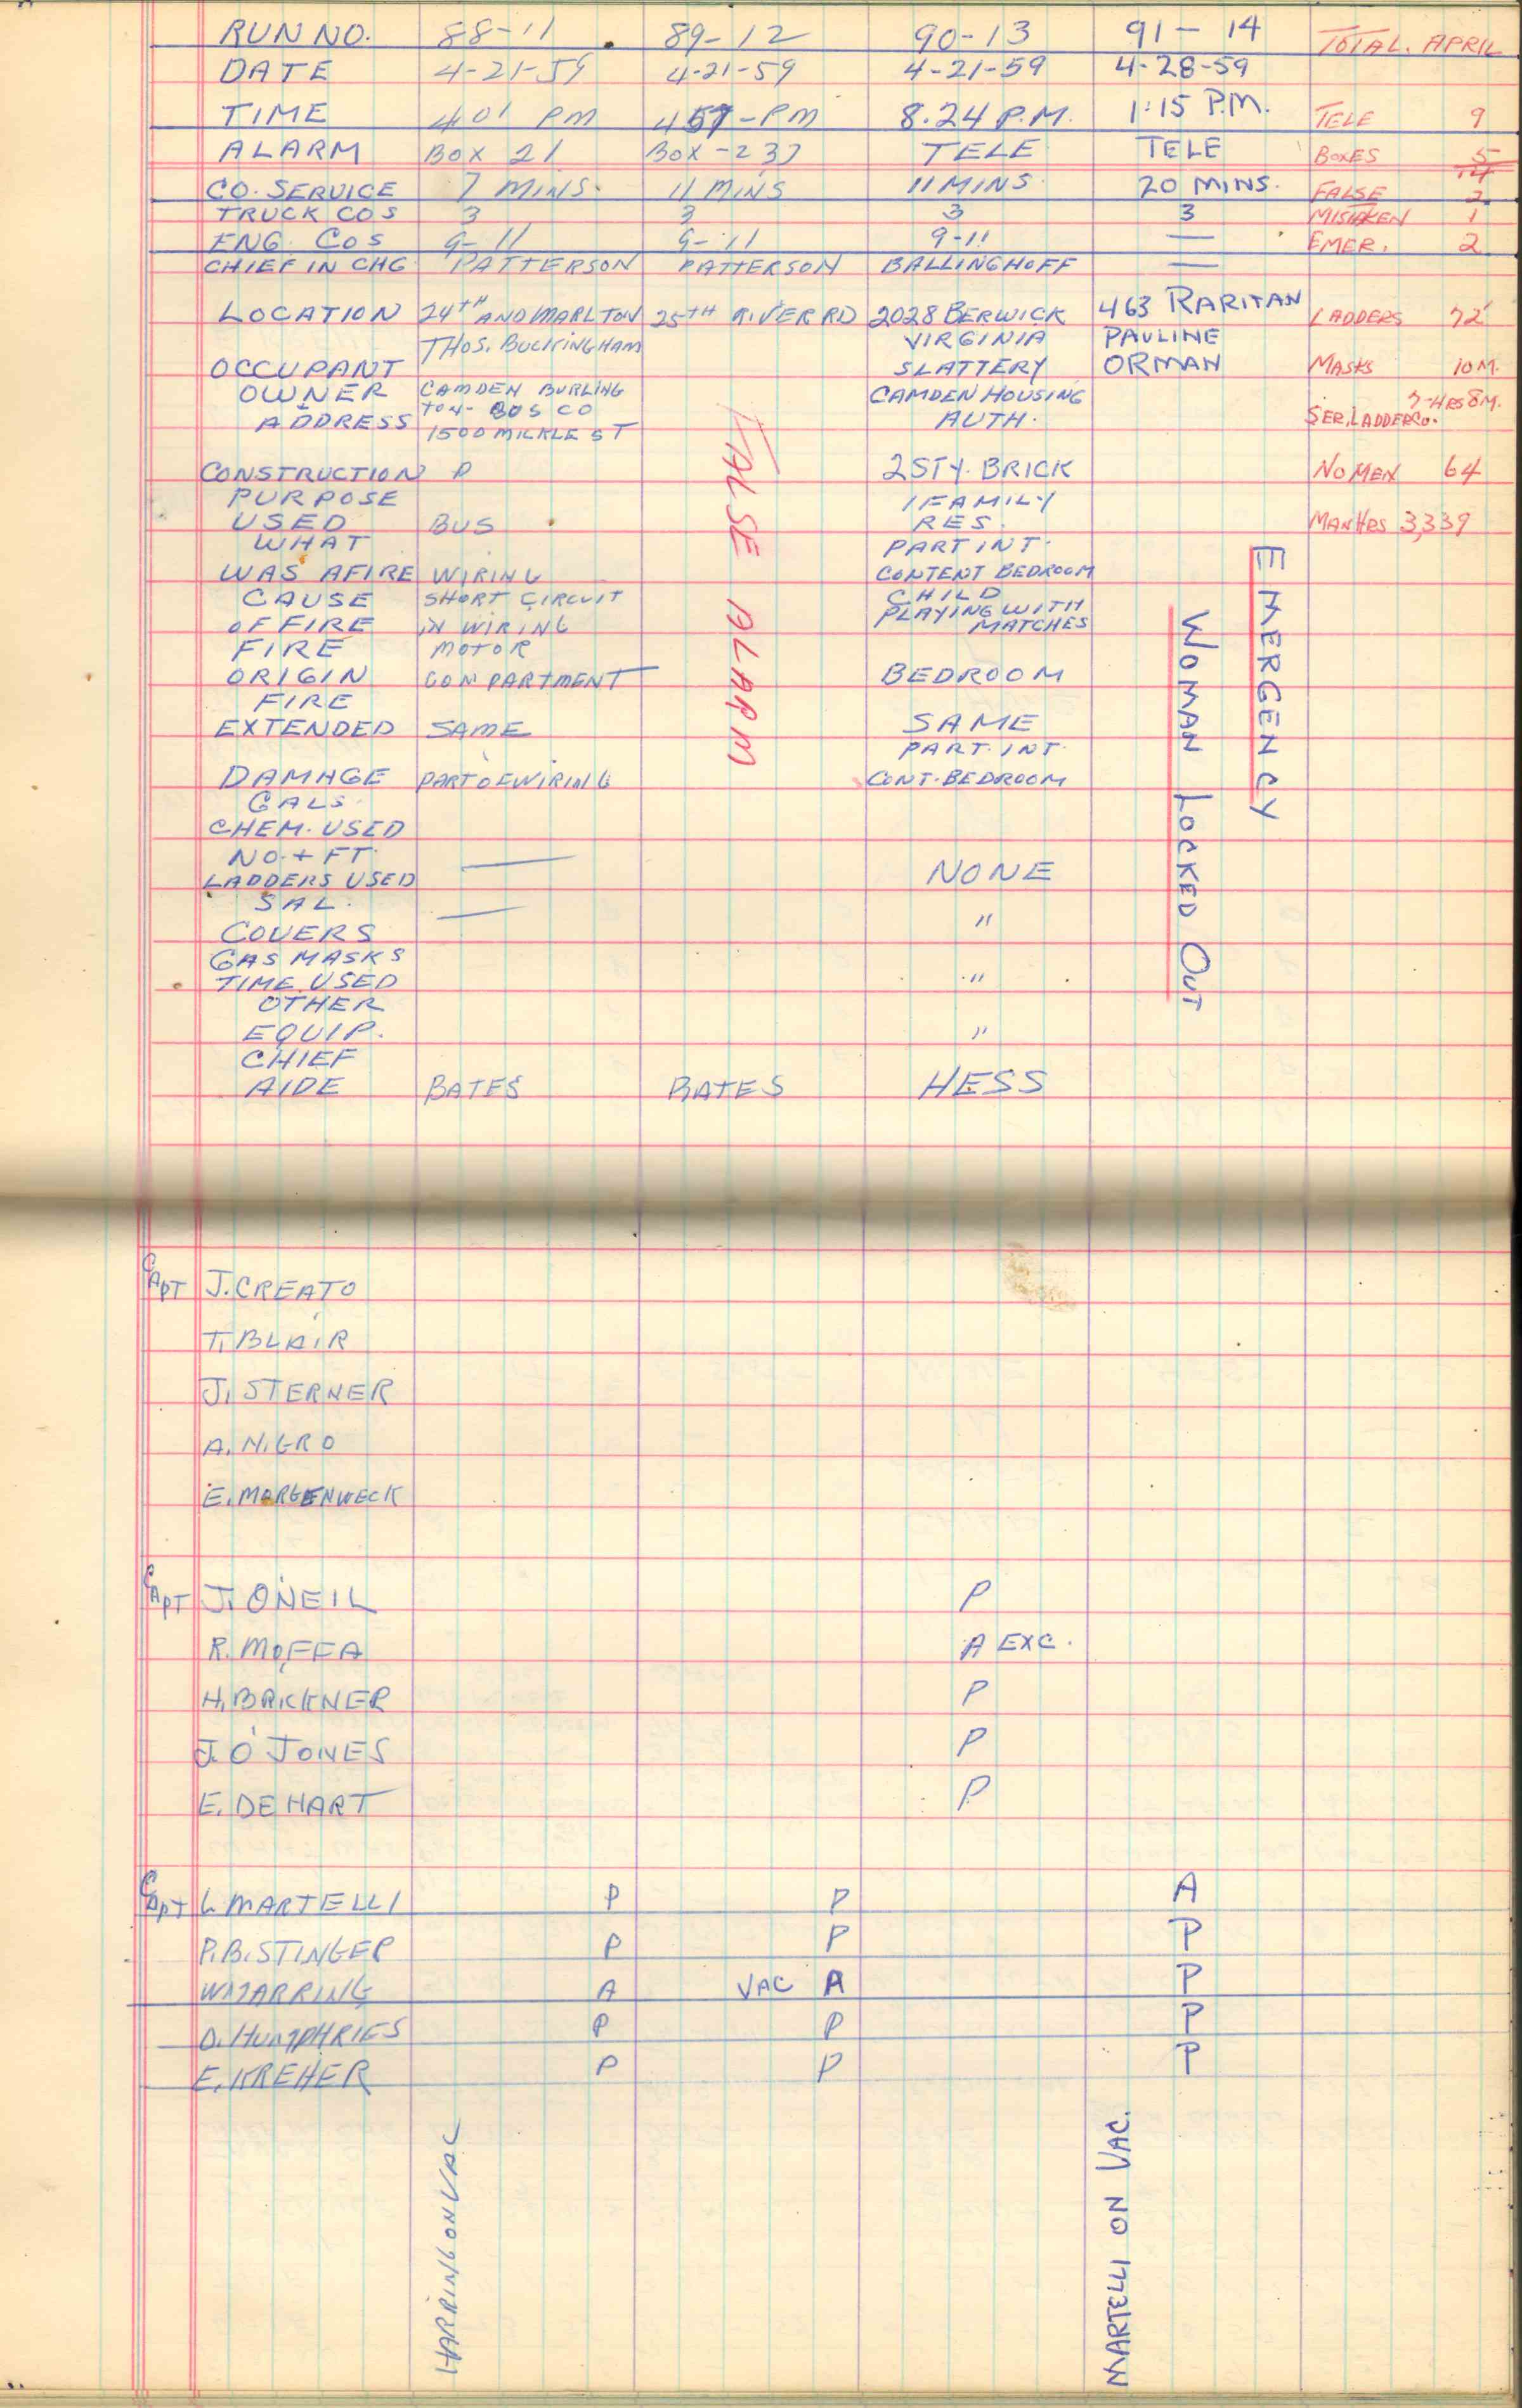 RUN NO. 88-11 89-12 90-13 91-14 TOTAL. APRIL
DATE 4-21-59 4-21-59 4-21-59 4-28-59
TIME 401 PM 457-PM 8.24 P.M. 1:15 P.M. TELE 9
ALARM BOX 21 BOX-237 TELE TELE BOXES 5
14
CO. SERVICE 7 MINS. 11 MINS 11 MINS. 20 MINS. FALSE 2
TRUCK COS 3 3 3 3 MISTAKEN 1
ENG. COS 9-11 9-11 9-11 — EMER. 2
CHIEF IN CHG PATTERSON PATTERSON BALLINGHOFF —
LOCATION 24TH AND MARLTON 25TH RIVER RD 2028 BERWICK 463 RARITAN LADDERS 72'
THOS. BUCKINGHAM VIRGINIA PAULINE
OCCUPANT SLATTERY ORMAN MASKS 10 M.
OWNER CAMDEN BURLING CAMDEN HOUSING 7-HRS 8M.
ADDRESS TON- BUS CO AUTH. SER. LADDER CO.
1500 MICKLE ST
CONSTRUCTION P 2 STY. BRICK NO MEN 64
PURPOSE 1 FAMILY
USED BUS RES. MAN HRS 3,339
WHAT PART INT.
WAS AFIRE WIRING CONTENT BEDROOM
CAUSE SHORT CIRCUIT CHILD
OF FIRE IN WIRING PLAYING WITH
MATCHES
FIRE MOTOR
ORIGIN COMPARTMENT BEDROOM
FIRE
EXTENDED SAME SAME
PART. INT.
DAMAGE PART OF WIRING CONT. BEDROOM
GALS.
CHEM. USED
NO. + FT.
LADDERS USED — NONE
SAL. —
COVERS "
GAS MASKS
TIME USED "
OTHER
EQUIP. "
CHIEF
AIDE BATES BATES HESS
FALSE ALARM
EMERGENCY
WOMAN LOCKED OUT
CAPT J. CREATO
T. BLAIR
J. STERNER
A. NIGRO
E. MORGENWECK
CAPT J. ONEIL P
R. MOFFA A EXC.
H. BRICKNER P
J. O JONES P
E. DE HART P
CAPT L MARTELLI P P A
P. B. STINGER P P P
W HARRING A VAC A P
D. HUMPHRIES P P P
E. KREHER P P P
HARRING ON VAC
MARTELLI ON VAC.